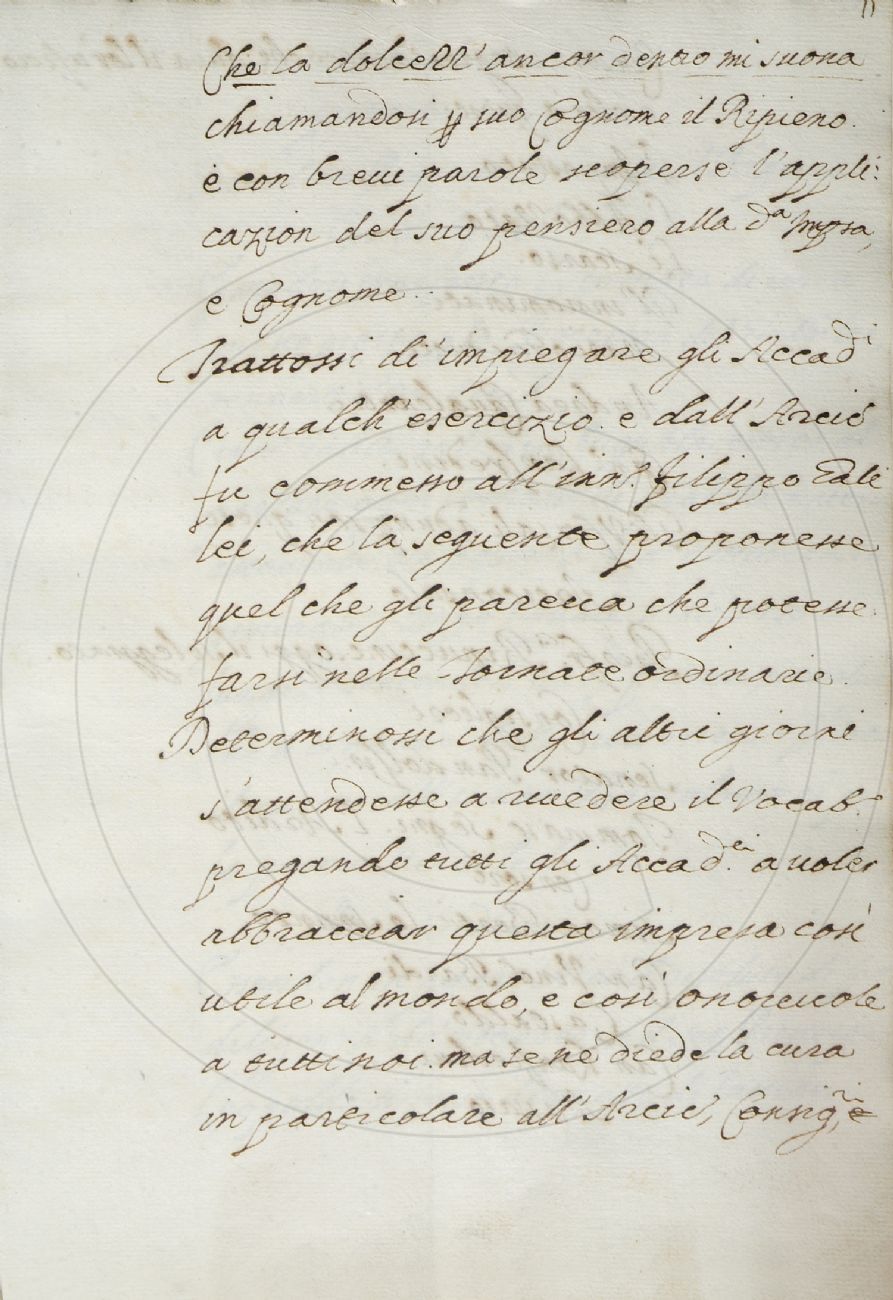 11
Che la dolcezz' ancor dentro mi suona
chiamandosi ꝑ suo Cognome il Ripieno.
e con brevi parole scoperse l'appli:
cazion del suo pensiero alla da Impsa,
e Cognome.
Trattossi di impiegare gli Accadi
a qualch' esercizio. e dall' Arcio
fu commesso all' inno. Filippo
lei, che la seguente proponesse
quel che gli pareva che potesse
farsi nelle Tornate ordinarie.
Determinossi che gli altri giorni
s'attendesse a rivedere il Vocabo.
pregando tutti gli Accad.ci a voler
abbracciar questa impresa così
utile al mondo, e così onorevole
a tutti noi. ma se ne diede la cura
in particolare all' Arcio, Consigri, e